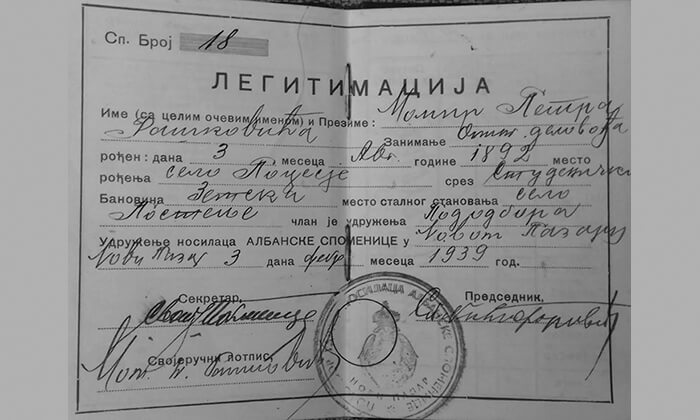 Сп. Број 18
ЛЕГИТИМАЦИЈА
Име (са целим очевим именом) и Презиме: Момир Петра
Рашковића Занимање Општ. деловођа
рођен: дана 3 месеца Авг. године 1892 место
рођења село Поцесје срез Студенички
Бановина Зетска место сталног становања село
Постење члан је удружења Пододбора
Удружење носилаца АЛБАНСКЕ СПОМЕНИЦЕ у Новом Пазару
Нови Пазар 3 дана фебр. месеца 1939 год.
Секретар, Председник,
Својеручни потпис,
НОСИЛАЦА АЛБАНСКЕ СПОМЕНИЦЕ
НОВИ ПАЗАР